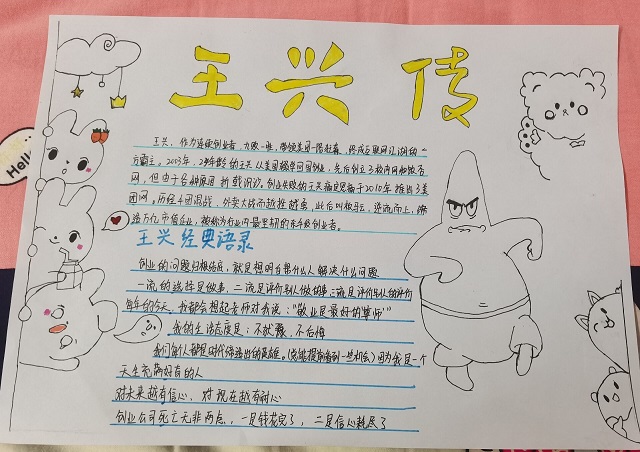 王兴传
王兴，作为连续创业者，九败一胜，带领美团一路赶赢，终成互联网江湖的一
方霸主。2003年，24年龄的王兴从美国辍学回国创业，先后创立了校内网和饭否
网，但由于各种原因折戟沉沙。创业失败的王兴痛定思痛于2010年推出了美
团网，历经千团混战，外卖大战而越挫越勇，此后叫板，逆流而上，
造万亿市值企业，被称为行业内最坚韧的创业者。
王兴经典语录
创业的问题归根结底，就是想明白帮什么人解决什么问题
一流的选择是做事，二流是评价别人做的事三流是评价别人的评价
每年的今天，我都会想起老师对我说："敬业是最好的算师"
我的生活态度是：不犹豫，不后悔
我们每个人都是时代筛选出的英雄。（总能提前看到一些机会）因为我是一个
天生充满好奇的人
对未来越有信心，对现在越有耐心
创业公司死亡无非两点，一是钱花完了，二是信心耗尽了
Hello